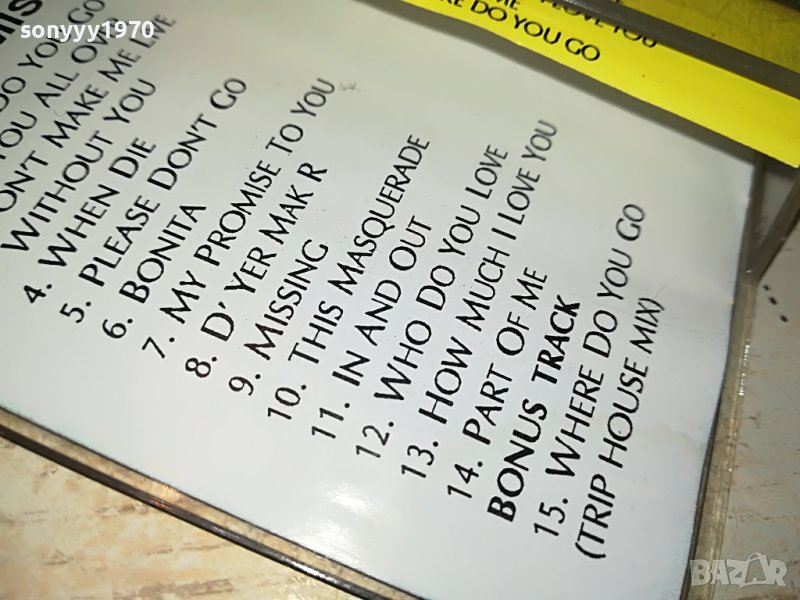 sonyyy1970
LOVE YOU
RE DO YOU GO
DO YOU GO
YOU ALL OVER
ON'T MAKE ME LIVE
WITHOUT YOU
4. WHEN DIE
5. PLEASE DON'T GO
6. BONITA
7. MY PROMISE TO YOU
8. D' YER MAK R
9. MISSING
10. THIS MASQUERADE
11. IN AND OUT
12. WHO DO YOU LOVE
13. HOW MUCH I LOVE YOU
14. PART OF ME
BONUS TRACK
15. WHERE DO YOU GO
(TRIP HOUSE MIX)
BAZAR